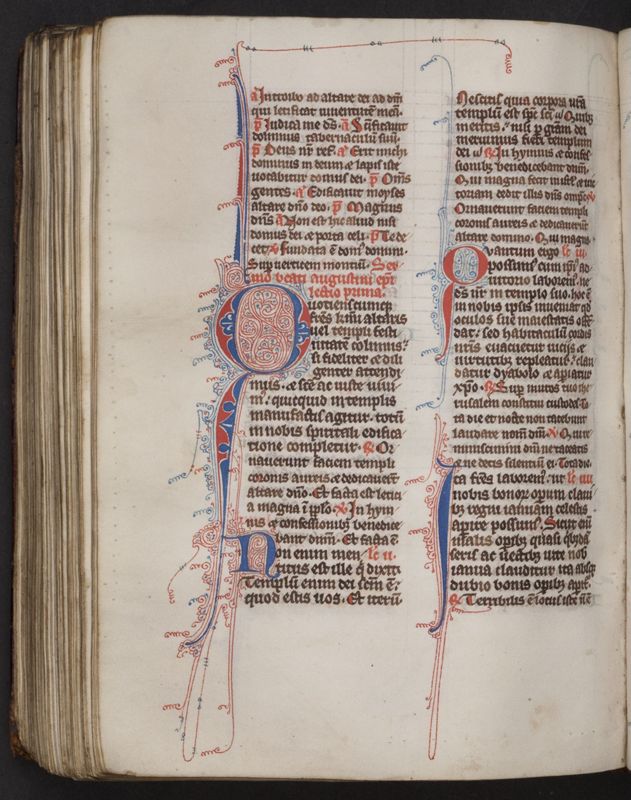 a Introibo ad altare dei ad dm̄
qui letificat iuuentutē meā.
p̄ Iudica me ds̄. a Sc̄ificauit
dominus tabernaculū suū.
p̄ Deus nr̄ ref. a Erit michi
dominus in deum & lapis iste
uocabitur domus dei. p̄ Om̄s
gentes. a Edificauit moyses
altare dn̄o deo. p̄ Magnus
dn̄s a Non est hic aliud nisi
domus dei & porta celi. p̄ Te de
cet. v̄ fundata ē dom̄ domini
Sup̄ uerticem montiū. Ser
mo beati augustini ep̄i
lectio prima.
Quotienscumq̄
fr̄es km̄i altaris
uel templi festi
uitatē colimus.
si fideliter & dili
genter attendi
mus. & sc̄e ac iuste uiui
m̄. quicquid in templis
manufactis agitur. totū
in nobis spiritali edifica
tione completur. R̄ Or
nauerunt faciem templi
coronis aureis & dedicauer̄t
altare dn̄o. Et facta est letici
a magna i ip̄lo. v̄ In hym
nis & confessionib; benedice
bant dnm̄. Et facta ē
Non enim men le ii.
titus est ille q̄ dixit.
Templū enim dei sc̄m ē.
quod estis uos. Et iterū
Nescitis quia corpora ur̄a
templū est sp̄c sc̄i
meritis. nisi p̄ gr̄am dei
meruimus fieri templum
dei R̄ In hymnis & confes
sionib; benedicebant dnm̄.
Qui magna fecit in isrl̄ & uic
toriam dedit illis dn̄s omp̄c v̄
Ornauerunt faciem templi
coronis aureis & dedicauerūt
altare domino. Qui magna
Quantum ergo le iii
possum; cum ip̄i ad
iutorio laborem; ne
ds̄ nr̄ in templo suo. hoc ē
in nobis ipsis inueniat qd̄
oculos sue maiestatis offē
dat. sed habitaculū cordis
nr̄is euacuetur uiciis &
uirtutib; repleatur. clau
datur dyabolo & apiatur
xp̄o. R̄ Sup̄ muros tuos ihe
rusalem constitui custodes to
ta die et nocte non tacebunt
laudare nom̄ dn̄i. v̄ Qui re
miniscimini dn̄i ne taceatis
& ne detis silentiū ei. Tota die
Ita fr̄es laborem; ut le iiii
nobis bonor̄ operum claui
b; regni ianuam celestis
apire possim;. Sicut eni
seris ac uectib; uite nob
ianua clauditur ita absq̄
dubio bonis operib; apit̄.
R̄ Terribilis ē locus iste n̄ ē